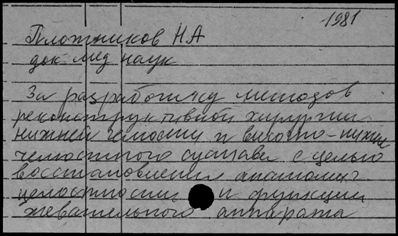 1981
Плотников НА
док. мед наук
За разработку методов
реконструктивной хирургии
нижней челюсти и височно-нижне
челюстного сустава с целью
восстановления анатомич
целостности и функции
жевательного аппарата